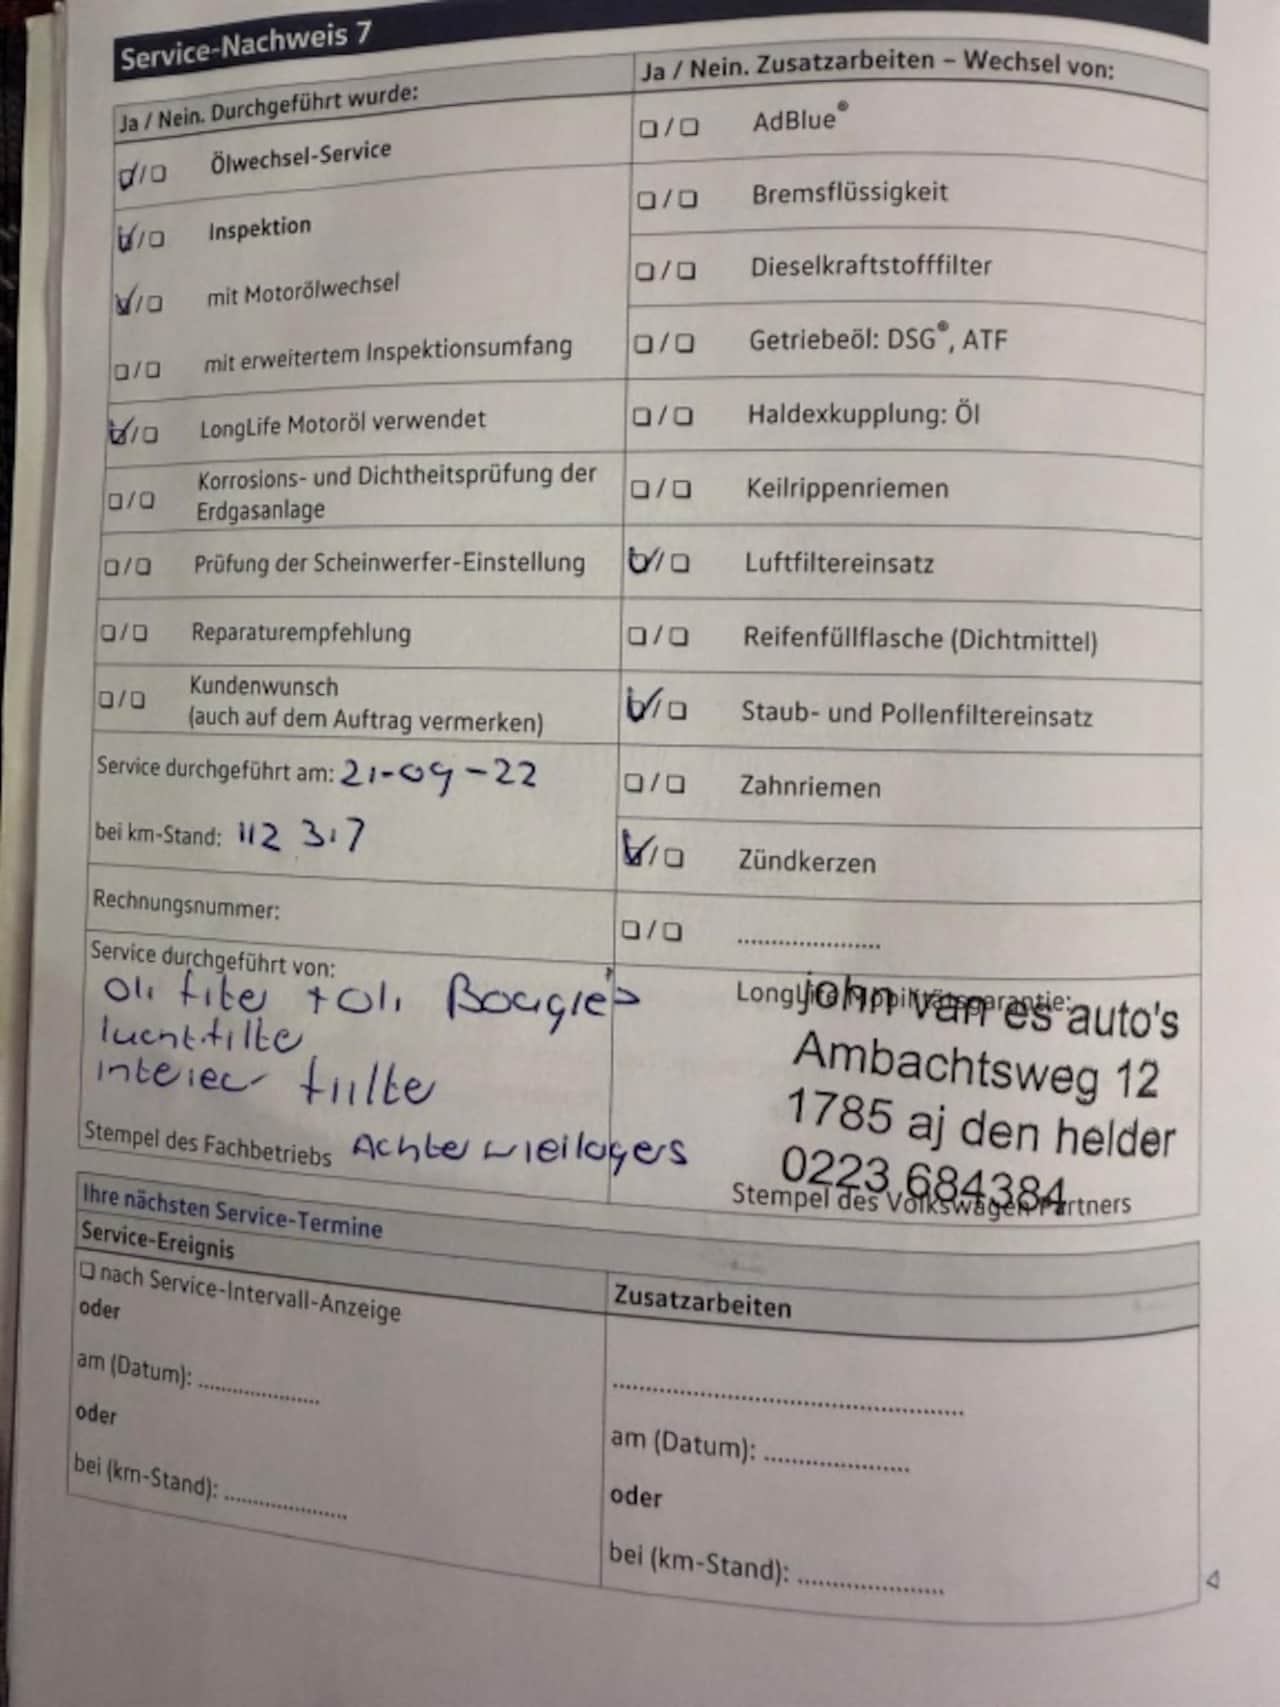 Service-Nachweis 7
Ja / Nein. Durchgeführt wurde:
☑/☐ Ölwechsel-Service
☑/☐ Inspektion
☑/☐ mit Motorölwechsel
☐/☐ mit erweitertem Inspektionsumfang
☑/☐ LongLife Motoröl verwendet
☐/☐ Korrosions- und Dichtheitsprüfung der
Erdgasanlage
☐/☐ Prüfung der Scheinwerfer-Einstellung
☐/☐ Reparaturempfehlung
☐/☐ Kundenwunsch
(auch auf dem Auftrag vermerken)
Service durchgeführt am: 21-09-22
bei km-Stand: 112 317
Rechnungsnummer:
Service durchgeführt von:
Oli filter + Oli Bougies
luchtfilter
interieur filter
Stempel des Fachbetriebs Achter wiellagers
Ja / Nein. Zusatzarbeiten – Wechsel von:
☐/☐ AdBlue®
☐/☐ Bremsflüssigkeit
☐/☐ Dieselkraftstofffilter
☐/☐ Getriebeöl: DSG®, ATF
☐/☐ Haldexkupplung: Öl
☐/☐ Keilrippenriemen
☑/☐ Luftfiltereinsatz
☐/☐ Reifenfüllflasche (Dichtmittel)
☑/☐ Staub- und Pollenfiltereinsatz
☐/☐ Zahnriemen
☑/☐ Zündkerzen
☐/☐ .....................
LongLife Mobilitätsgarantie:
john van es auto's
Ambachtsweg 12
1785 aj den helder
0223 684384
Stempel des Volkswagen Partners
Ihre nächsten Service-Termine
Service-Ereignis
☐ nach Service-Intervall-Anzeige
oder
am (Datum): ..................
oder
bei (km-Stand): ..................
Zusatzarbeiten
..................................................
am (Datum): .....................
oder
bei (km-Stand): .....................